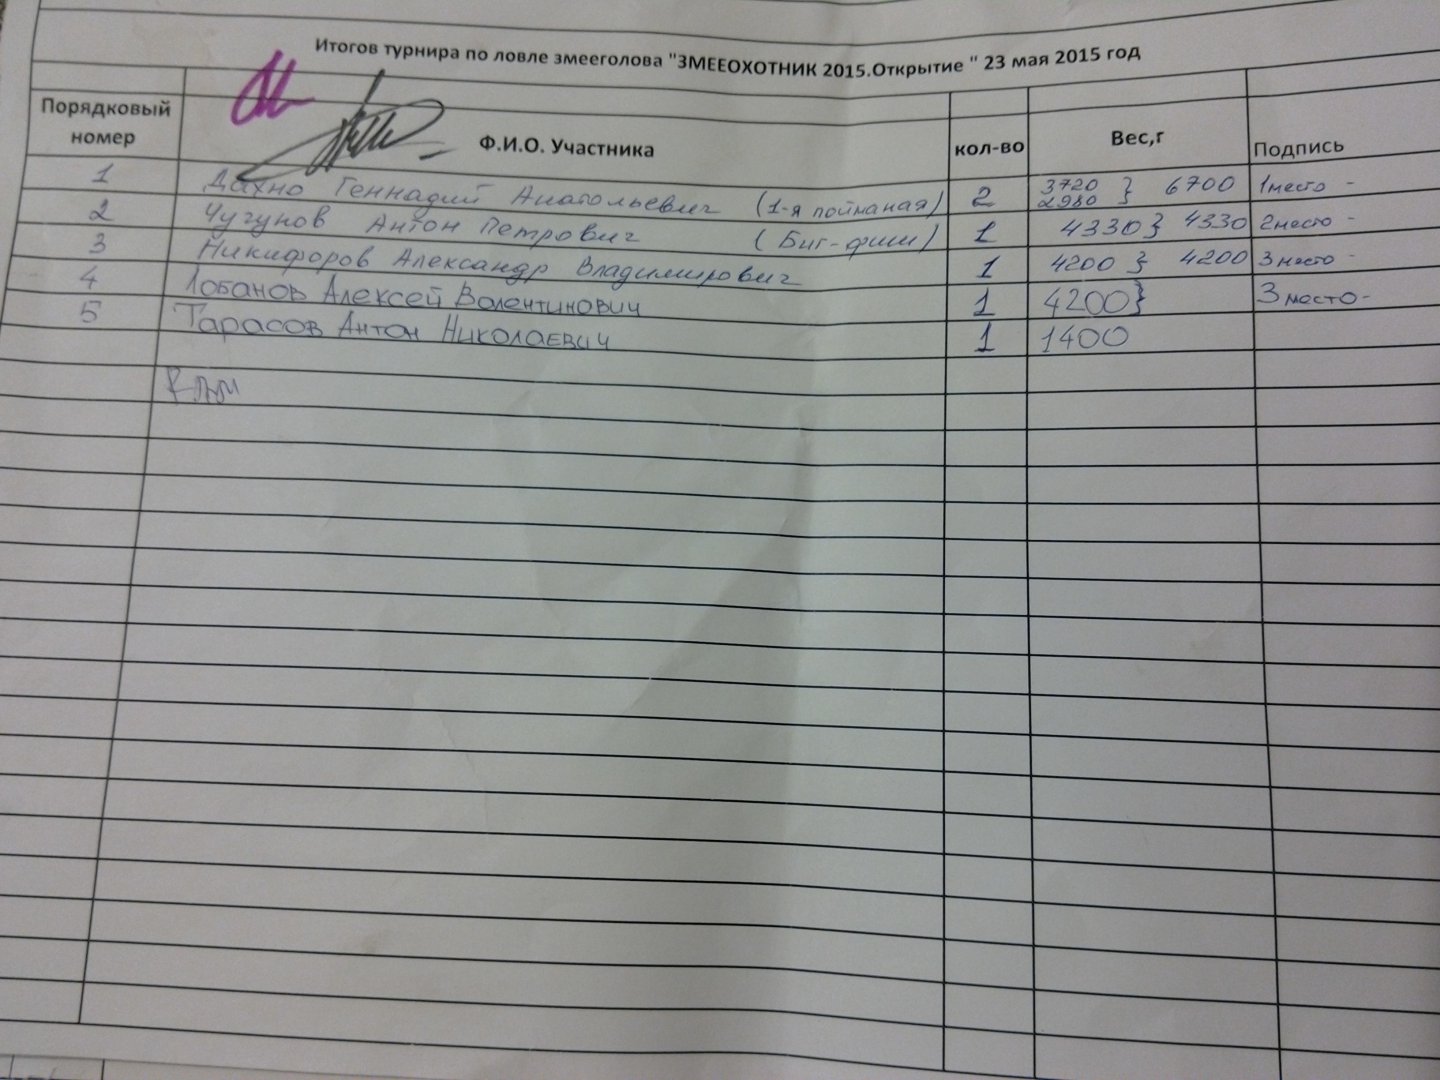 Итогов турнира по ловле змееголова "ЗМЕЕОХОТНИК 2015.Открытие " 23 мая 2015 год
Порядковый номер Ф.И.О. Участника кол-во Вес,г Подпись
1 Дахно Геннадий Анатольевич (1-я пойманая) 2 3720 2980 } 6700 1 место -
2 Чугунов Антон Петрович (Биг-фиш) 1 4330 } 4330 2 место -
3 Никифоров Александр Владимирович 1 4200 } 4200 3 место -
4 Лобанов Алексей Валентинович 1 4200 } 3 место -
5 Тарасов Антон Николаевич 1 1400